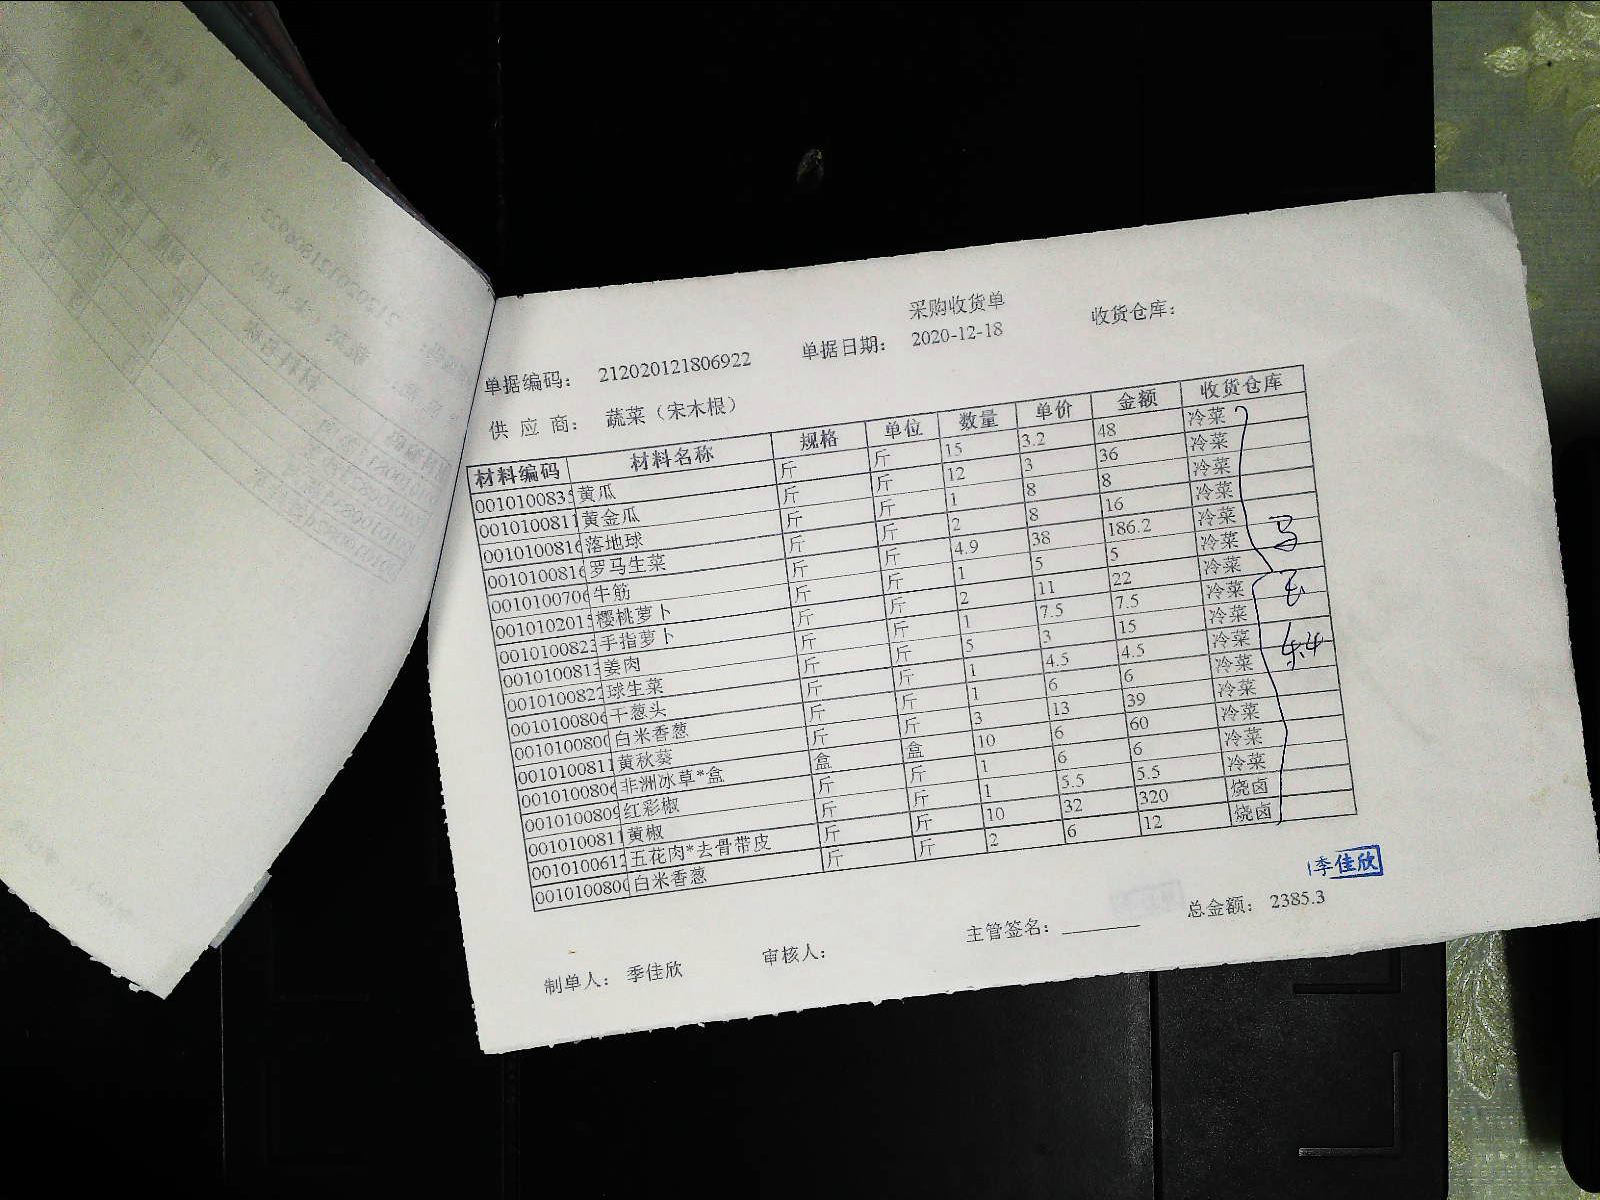 采购收货单
单据编码： 212020121806922 单据日期： 2020-12-18 收货仓库：
供 应 商： 蔬菜（宋木根）
材料编码 材料名称 规格 单位 数量 单价 金额 收货仓库
001010083 黄瓜 斤 斤 15 3.2 48 冷菜
0010100811 黄金瓜 斤 斤 12 3 36 冷菜
001010081 落地球 斤 斤 1 8 8 冷菜
001010081 罗马生菜 斤 斤 2 8 16 冷菜
001010070 牛筋 斤 斤 4.9 38 186.2 冷菜
001010201 樱桃萝卜 斤 斤 1 5 5 冷菜
001010082 手指萝卜 斤 斤 2 11 22 冷菜
001010081 姜肉 斤 斤 1 7.5 7.5 冷菜
001010082 球生菜 斤 斤 5 3 15 冷菜
001010080 干葱头 斤 斤 1 4.5 4.5 冷菜
001010080 白米香葱 斤 斤 1 6 6 冷菜
0010100811 黄秋葵 斤 斤 3 13 39 冷菜
001010080 非洲冰草*盒 盒 盒 10 6 60 冷菜
001010080 红彩椒 斤 斤 1 6 6 冷菜
0010100811 黄椒 斤 斤 1 5.5 5.5 冷菜
001010061 五花肉*去骨带皮 斤 斤 10 32 320 烧卤
001010080 白米香葱 斤 斤 2 6 12 烧卤
李佳欣
制单人： 季佳欣 审核人： 主管签名： 总金额： 2385.3